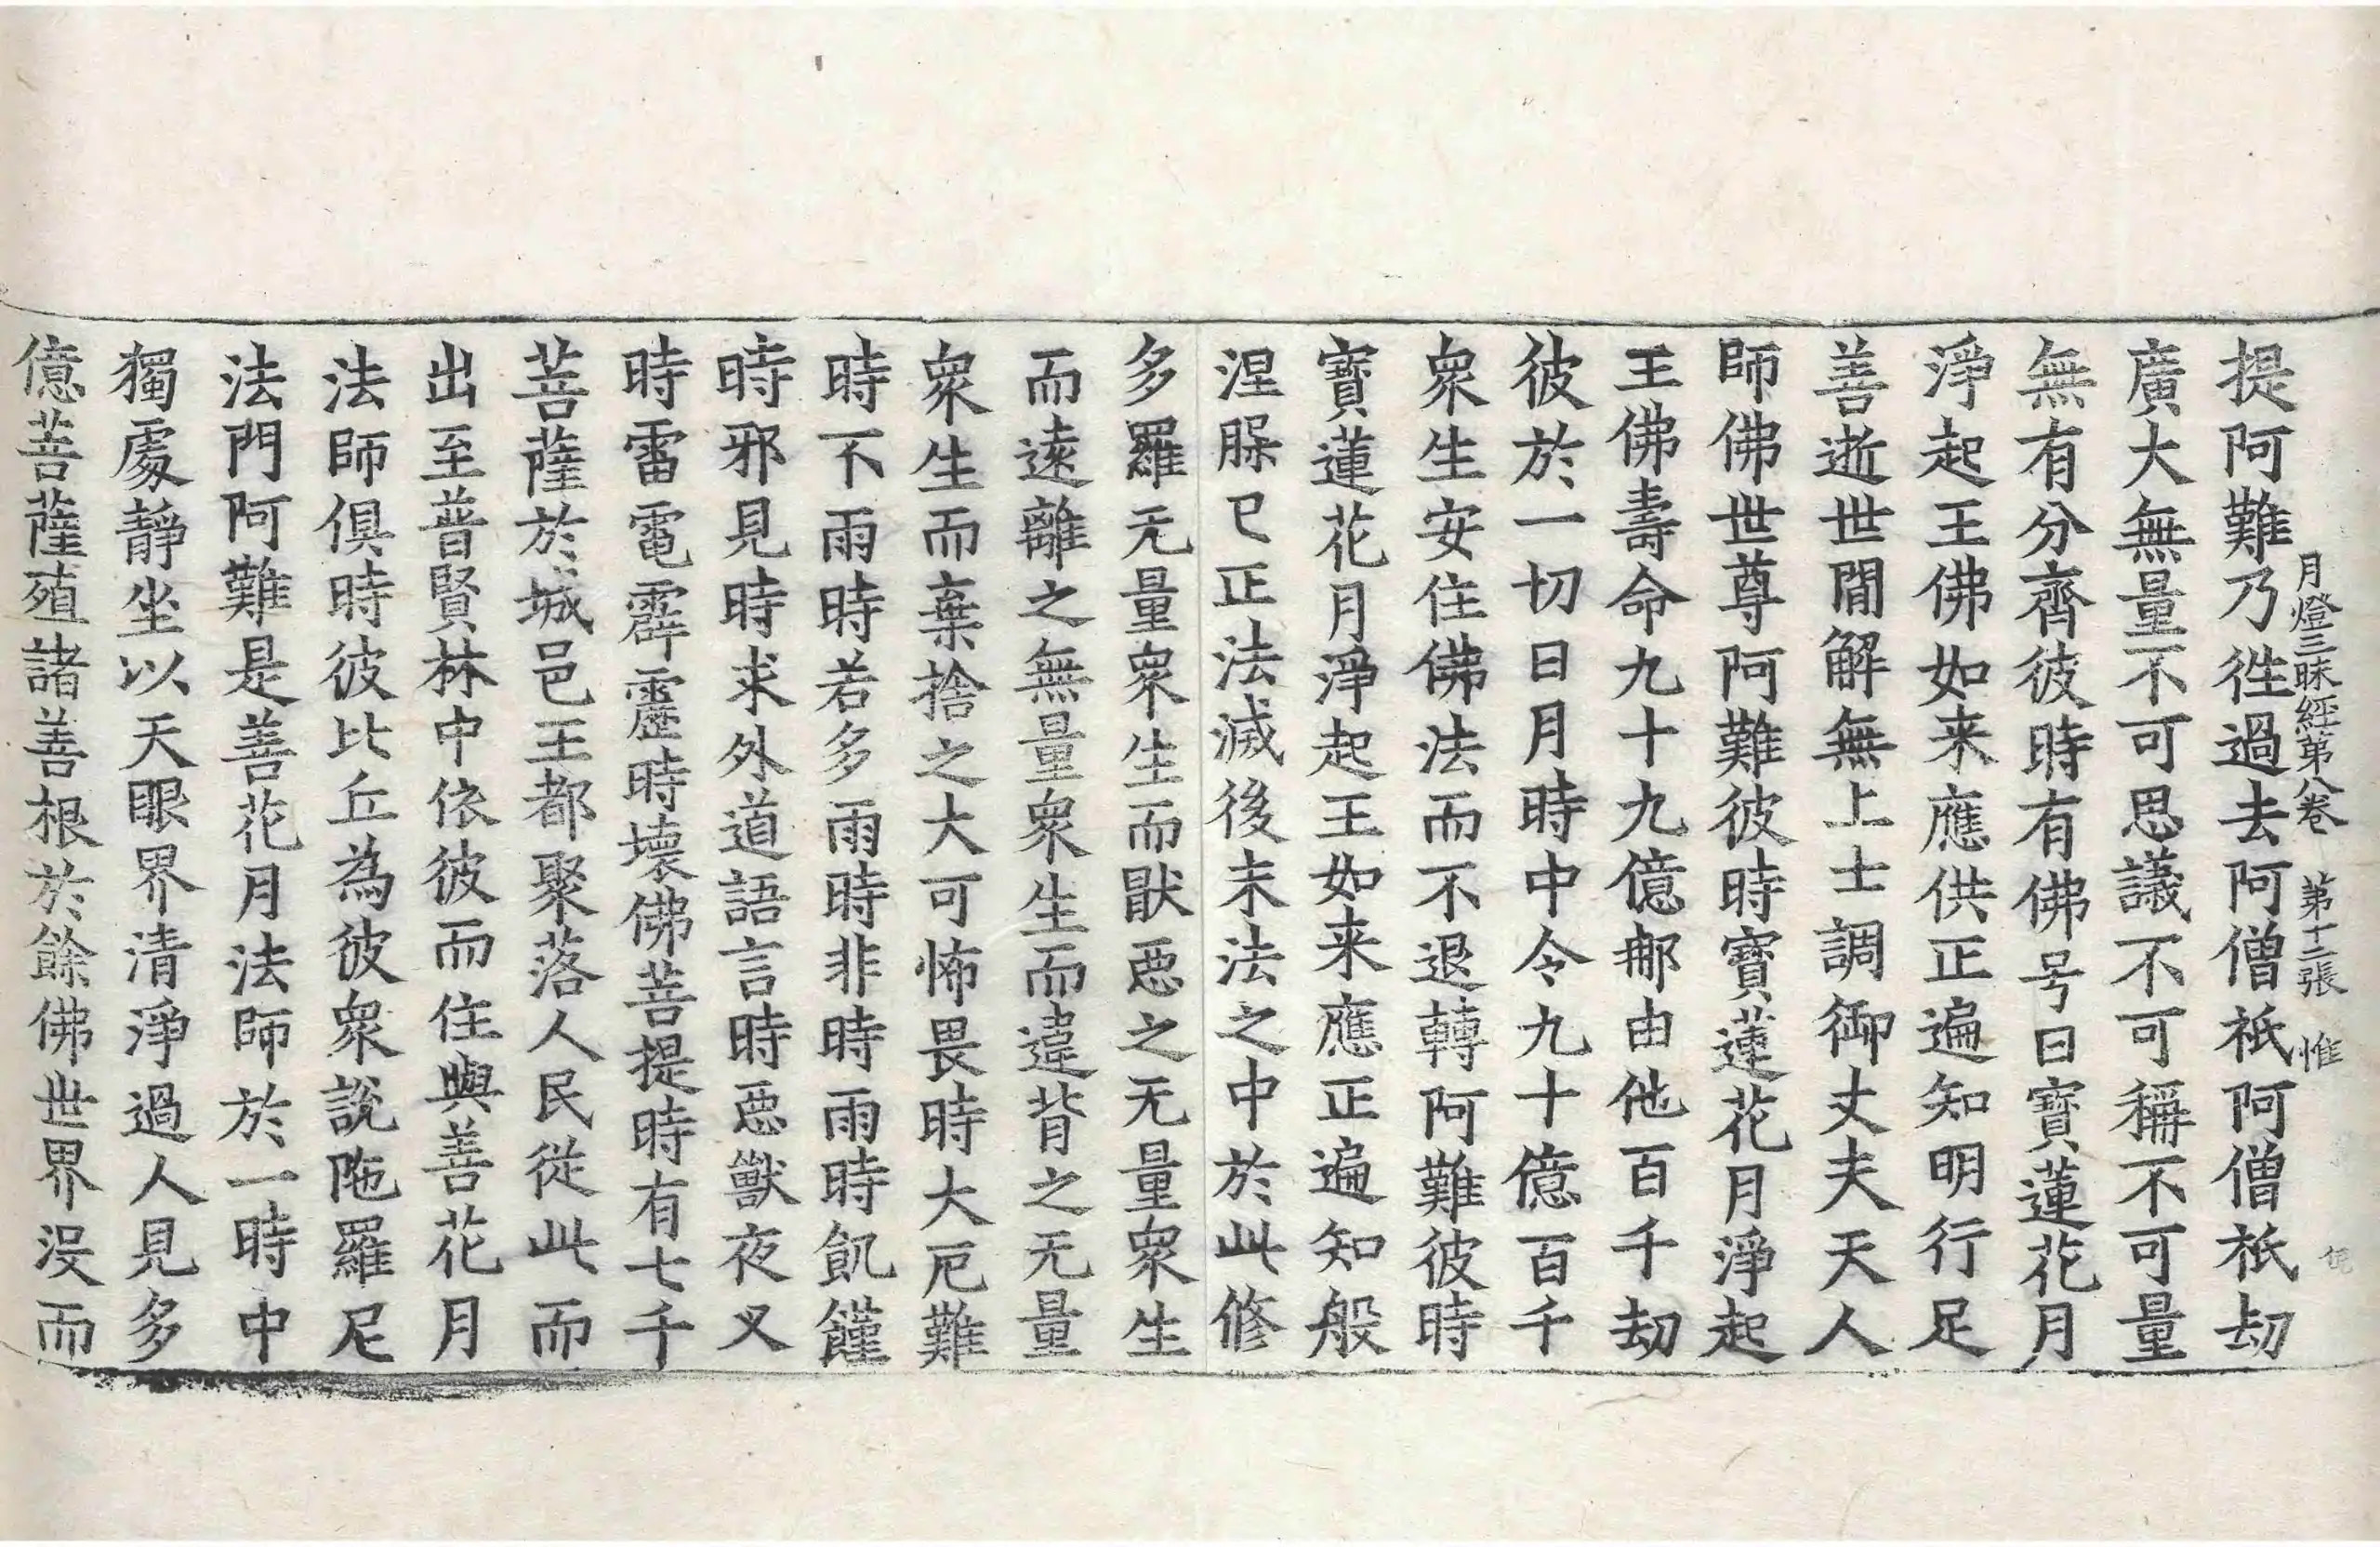 月燈三昧經第八卷 第十二張 惟
提阿難乃徃過去阿僧祇阿僧祇劫
廣大無量不可思議不可稱不可量
無有分齊彼時有佛号曰寶蓮花月
淨起王佛如来應供正遍知明行足
善逝世間解無上士調御丈夫天人
師佛世尊阿難彼時寶蓮花月淨起
王佛壽命九十九億那由他百千劫
彼於一切日月時中令九十億百千
衆生安住佛法而不退轉阿難彼時
寶蓮花月淨起王如来應正遍知般
涅槃已正法滅後末法之中於此修
多羅无量衆生而猒惡之无量衆生
而遠離之無量衆生而違背之无量
衆生而棄捨之大可怖畏時大厄難
時不雨時若多雨時非時雨時飢饉
時邪見時求外道語言時惡獸夜叉
時雷電霹靂時壞佛菩提時有七千
菩薩於城邑王都聚落人民從此而
出至普賢林中依彼而住與善花月
法師俱時彼比丘為彼衆說陁羅尼
法門阿難是善花月法師於一時中
獨處靜坐以天眼界清淨過人見多
億菩薩殖諸善根於餘佛世界沒而